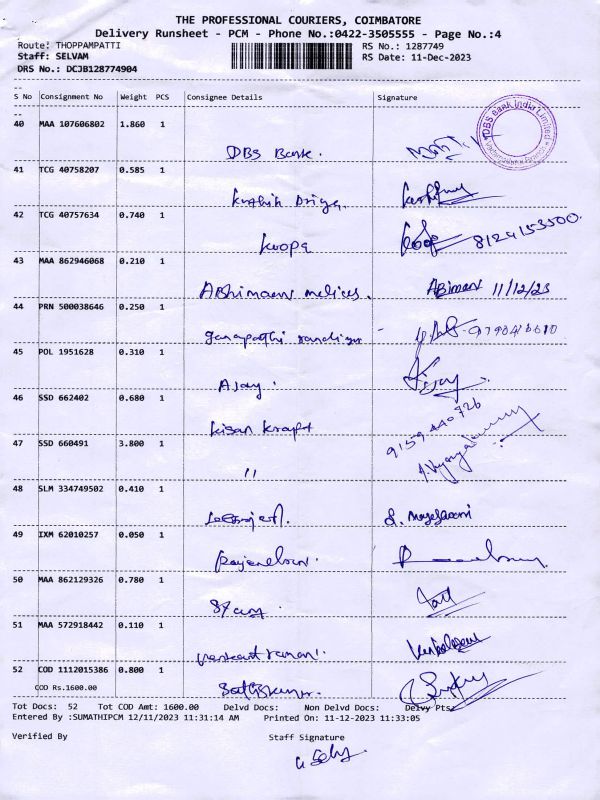 THE PROFESSIONAL COURIERS, COIMBATORE
Delivery Runsheet - PCM - Phone No.:0422-3505555 - Page No.:4
Route: THOPPAMPATTI RS No.: 1287749
Staff: SELVAM RS Date: 11-Dec-2023
DRS No.: DCJB128774904
--
S No Consignment No Weight PCS Consignee Details Signature
--
40 MAA 107606802 1.860 1
DBS Bank.
DBS Bank India Limited
41 TCG 40758207 0.585 1
Priya
42 TCG 40757634 0.740 1
Koopa 8124153500
43 MAA 862946068 0.210 1
Abhimaan Abiman 11/12/23
44 PRN 500038646 0.250 1
ganapatthi
45 POL 1951628 0.310 1
AJay. Vijay
46 SSD 662402 0.680 1
kisan kraft 9159440726
47 SSD 660491 3.800 1
"
48 SLM 334749502 0.410 1
49 IXM 62010257 0.050 1
50 MAA 862129326 0.780 1
51 MAA 572918442 0.110 1
52 COD 1112015386 0.800 1
COD Rs.1600.00
Sathiskumar.
Tot Docs: 52 Tot COD Amt: 1600.00 Delvd Docs: Non Delvd Docs: Delvy Pts:
Entered By :SUMATHIPCM 12/11/2023 11:31:14 AM Printed On: 11-12-2023 11:33:05
Verified By Staff Signature